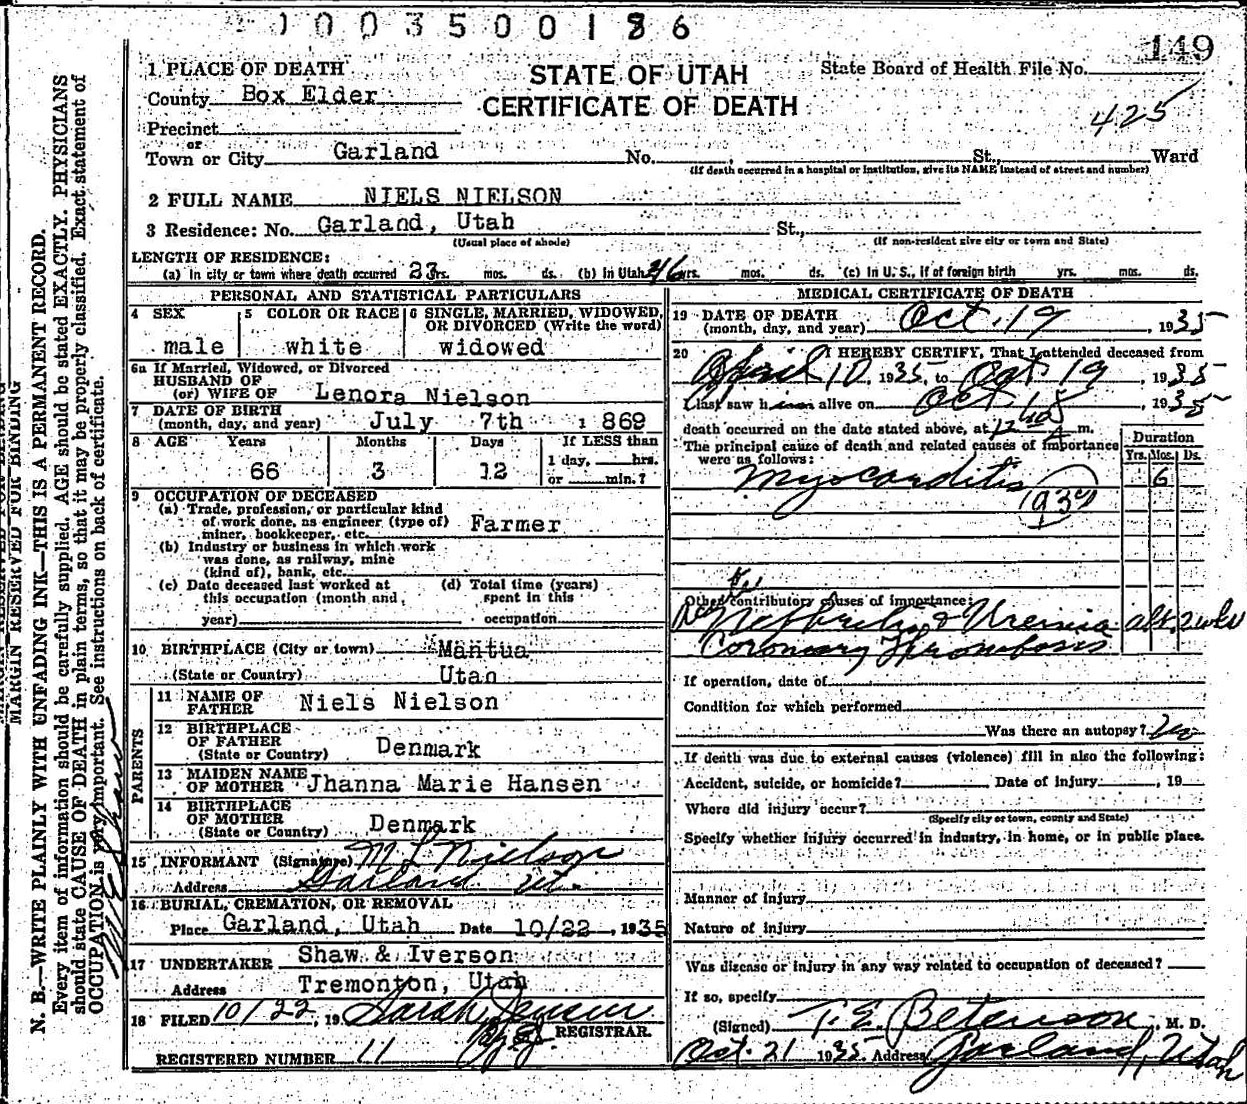 1003500186
149
1 PLACE OF DEATH
STATE OF UTAH
CERTIFICATE OF DEATH
State Board of Health File No.
County Box Elder
425
Precinct
or
Town or City Garland No. , St., Ward
(If death occurred in a hospital or institution, give its NAME instead of street and number)
2 FULL NAME NIELS NIELSON
3 Residence: No. Garland, Utah St.,
(Usual place of abode) (If non-resident give city or town and State)
LENGTH OF RESIDENCE:
(a) In city or town where death occurred 23 yrs. mos. ds. (b) In Utah 46 yrs. mos. ds. (c) In U.S., if of foreign birth yrs. mos. ds.
PERSONAL AND STATISTICAL PARTICULARS
4 SEX
male
5 COLOR OR RACE
white
6 SINGLE, MARRIED, WIDOWED,
OR DIVORCED (Write the word)
widowed
6a If Married, Widowed, or Divorced
HUSBAND OF
(or) WIFE OF Lenora Nielson
7 DATE OF BIRTH
(month, day, and year) July 7th 1869
8 AGE Years Months Days If LESS than
66 3 12 1 day, hrs.
or min.?
9 OCCUPATION OF DECEASED
(a) Trade, profession, or particular kind
of work done, as engineer (type of)
miner, bookkeeper, etc. Farmer
(b) Industry or business in which work
was done, as railway, mine
(kind of), bank, etc.
(c) Date deceased last worked at
this occupation (month and
year)
(d) Total time (years)
spent in this
occupation
10 BIRTHPLACE (City or town) Mantua
(State or Country) Utah
PARENTS
11 NAME OF
FATHER Niels Nielson
12 BIRTHPLACE
OF FATHER
(State or Country) Denmark
13 MAIDEN NAME
OF MOTHER Jhanna Marie Hansen
14 BIRTHPLACE
OF MOTHER
(State or Country) Denmark
15 INFORMANT (Signature) M L Nielson
Address Garland Ut.
16 BURIAL, CREMATION, OR REMOVAL
Place Garland, Utah Date 10/22, 1935
17 UNDERTAKER Shaw & Iverson
Address Tremonton, Utah
18 FILED 10/22, 19 Sarah Jensen
REGISTRAR.
REGISTERED NUMBER 11
MEDICAL CERTIFICATE OF DEATH
19 DATE OF DEATH
(month, day, and year) Oct. 19, 1935
20 I HEREBY CERTIFY, That I attended deceased from
April 10, 1935, to Oct 19, 1935
I last saw him alive on Oct , 1935
death occurred on the date stated above, at 12 A m.
The principal cause of death and related causes of importance
were as follows:
Duration
Yrs. Mos. Ds.
Myocarditis 6
193
Other contributory causes of importance:
Nephritis & Uremia abt. 2 wks
Coronary Thrombosis
If operation, date of
Condition for which performed
Was there an autopsy? No
If death was due to external causes (violence) fill in also the following:
Accident, suicide, or homicide? Date of injury , 19
Where did injury occur?
(Specify city or town, county and State)
Specify whether injury occurred in industry, in home, or in public place.
Manner of injury
Nature of injury
Was disease or injury in any way related to occupation of deceased?
If so, specify
(Signed) T. E. Betenson, M. D.
Oct. 21 1935 Address Garland, Utah
MARGIN RESERVED FOR BINDING
N. B.—WRITE PLAINLY WITH UNFADING INK—THIS IS A PERMANENT RECORD.
Every item of information should be carefully supplied. AGE should be stated EXACTLY. PHYSICIANS
should state CAUSE OF DEATH in plain terms, so that it may be properly classified. Exact statement of
OCCUPATION is very important. See instructions on back of certificate.